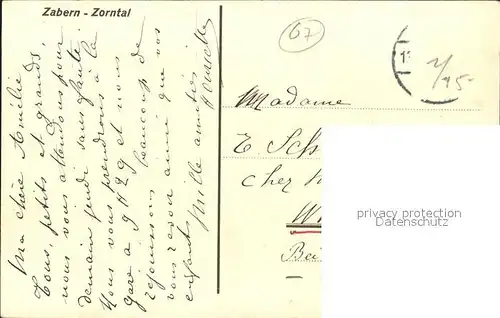 Zabern - Zorntal
67
Ma chère Amélie
Tous, petits et grands,
nous vous attendons pour
demain jeudi sans faute
Nous vous prendrons à la
gare à 9 H 29 et nous
réjouissons beaucoup de
vous revoir ainsi que vos
enfants Mille amitiés
Madame
E Sch
Cher
W
Bei
privacy protection
Datenschutz